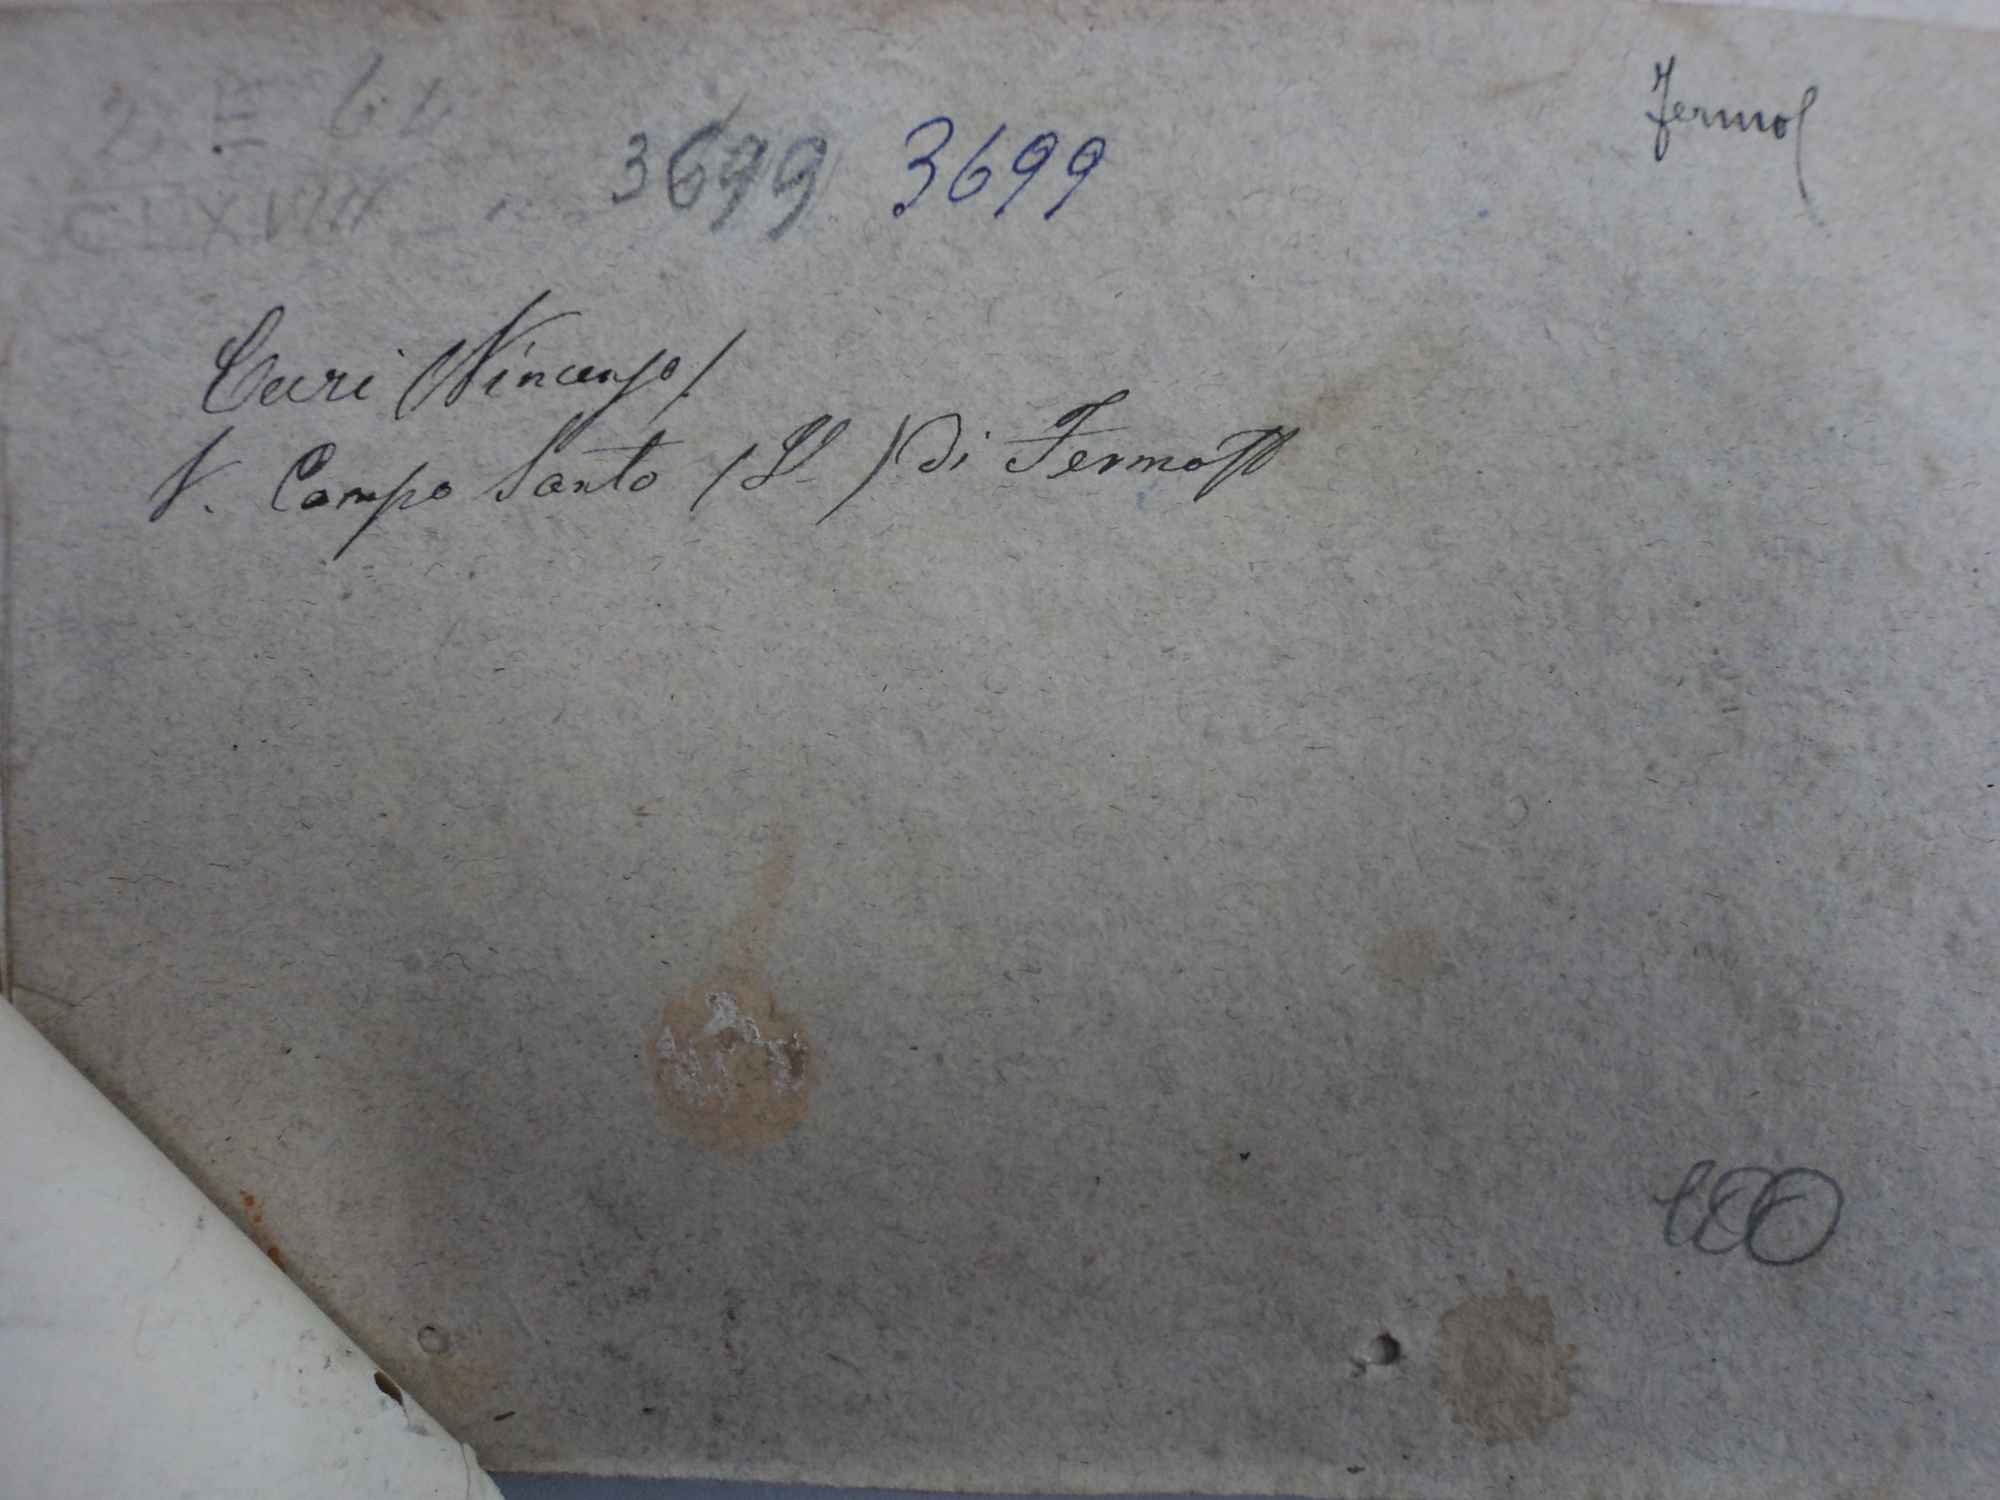 2 E 6 4
CLXVIII
3699 3699
Fermo
Curi (Vincenzo)
V. Campo Santo (Il) di Fermo
100